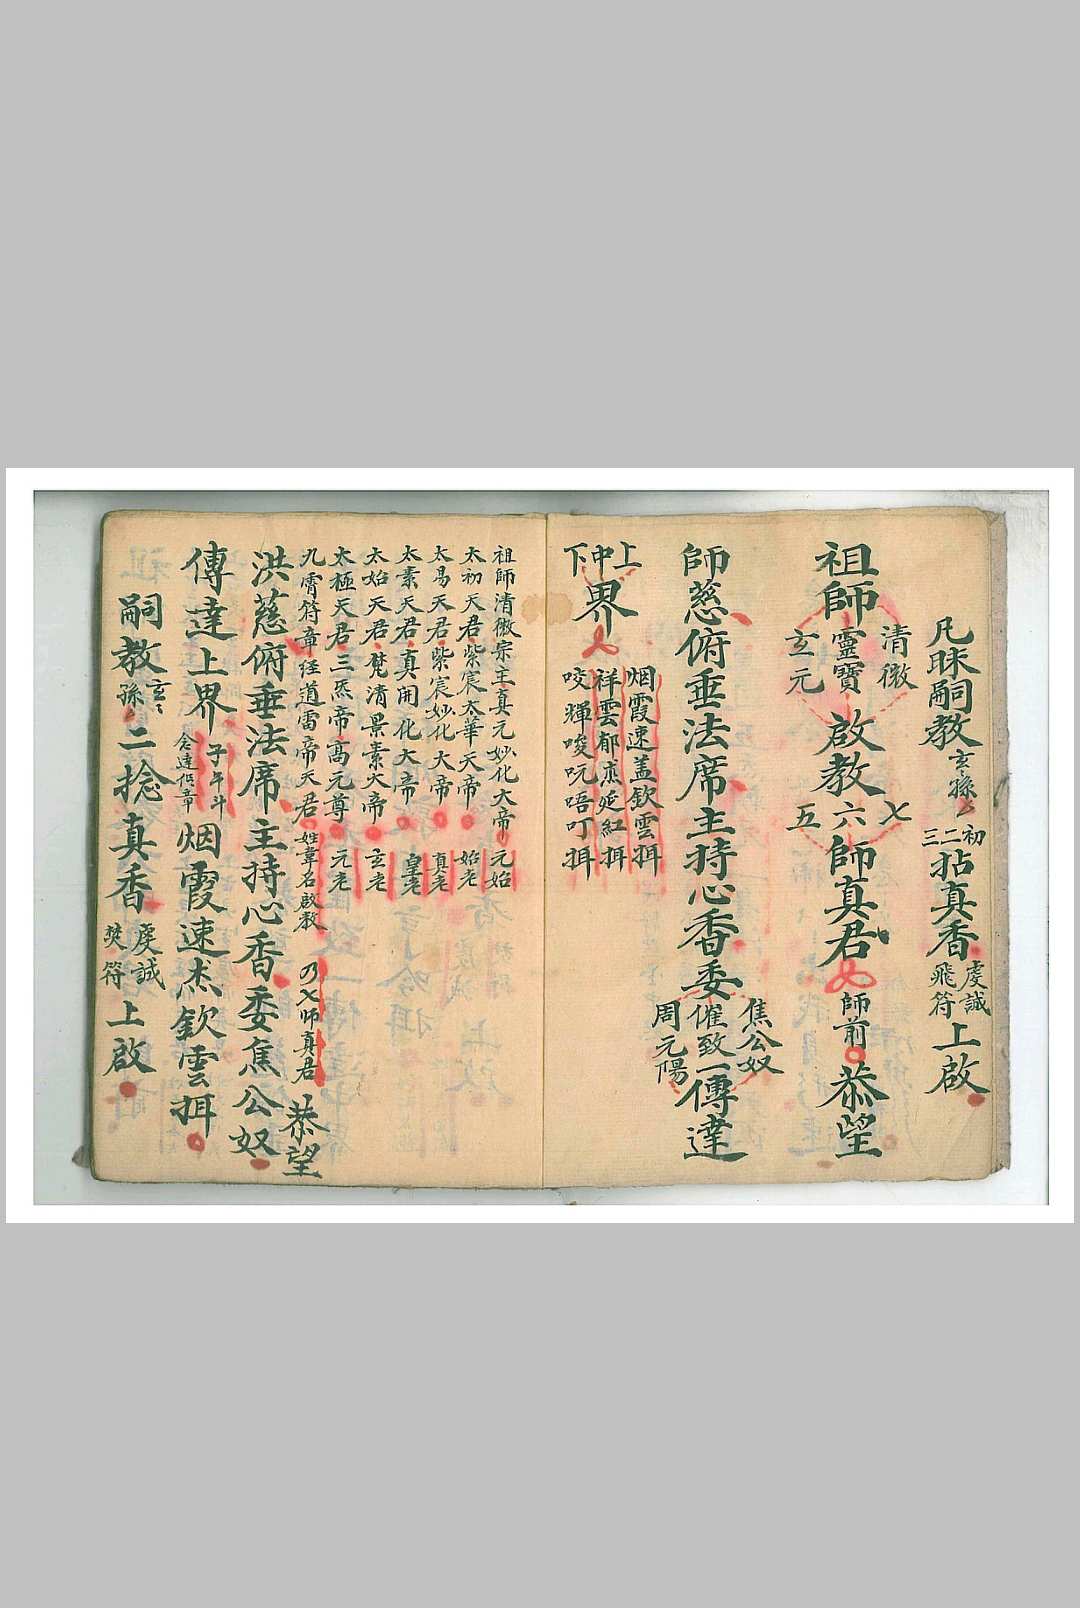 凡昧嗣教
玄孫
初二三
拈真香
虔誠
飛符
上啟
祖師
清微
靈寶
玄元
啟教
七
六
五
師真君
師前
恭望
師慈俯垂法席主持心香委
焦公奴
催致一
周元陽
傳達
上中下
界
烟霞速盖欽雲挕
祥雲郁
延紅挕
咬輝唆吭唔叮挕
祖師清微宗主真元妙化大帝 元始
太初天君紫宸太華天帝 始老
太易天君紫宸妙化大帝 真老
太素天君真開化大帝 皇老
太始天君梵清景素大帝 玄老
太極天君三炁帝高元尊 元老
九霄符章經道雷帝天君姓韋名啟教
乃七師真君
恭望
洪慈俯垂法席主持心香委焦公奴
傳達上界
子午斗
烟霞速杰欽雲挕
嗣教
玄
孫
二捻真香
虔誠
焚符
上啟